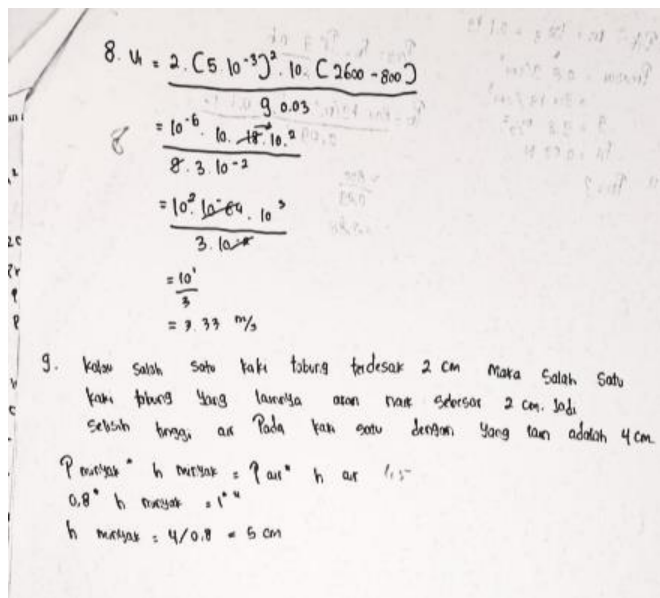 8. Vt = 2. (5. 10⁻³)². 10. (2600 - 800)
9. 0.03
8
= 10⁻⁶. 10. 18. 10.²
9. 3. 10⁻²
= 10². 10⁻⁶⁴. 10³
3. 10
= 10¹
3
= 3.33 m/s
9. Kalau salah satu kaki tabung terdesak 2 cm Maka salah satu
kaki tabung yang lainnya akan naik sebesar 2 cm. Jadi
selisih tinggi air Pada kaki satu dengan yang lain adalah 4 cm
ρ minyak * h minyak = ρ air * h air
0,8 * h minyak = 1 * 4
h minyak = 4/0,8 = 5 cm